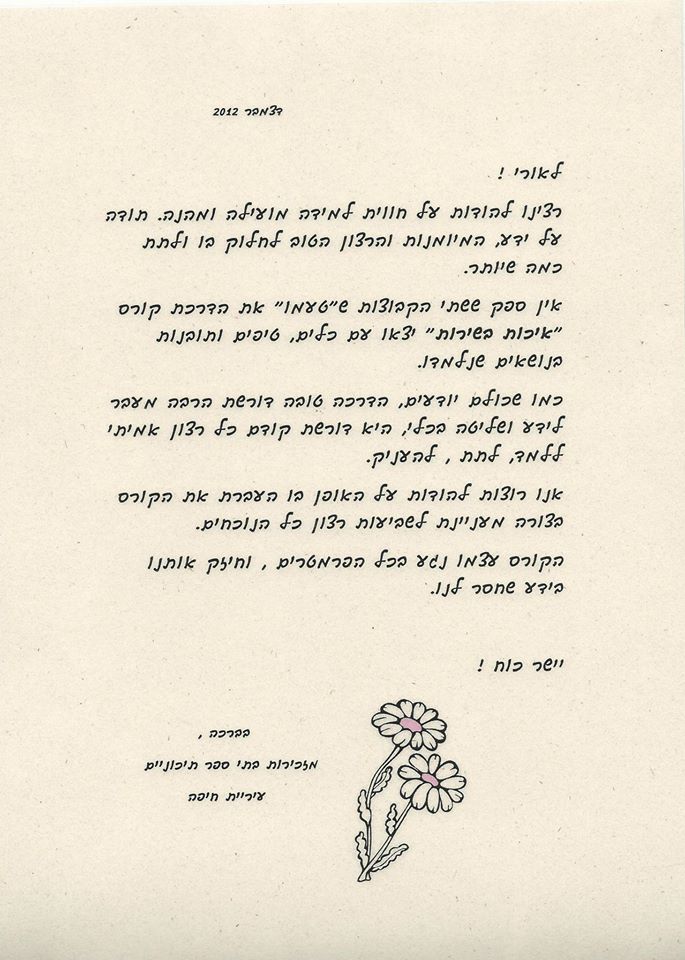 דצמבר 2012
לאורי !
רצינו להודות על חווית למידה מועילה ומהנה. תודה
על ידע, המיומנות והרצון הטוב לחלוק בו ולתת
כמה שיותר.
אין ספק ששתי הקבוצות ש"טעמו" את הדרכת קורס
"איכות בשירות" יצאו עם כלים, טיפים ותובנות
בנושאים שנלמדו.
כמו שכולם יודעים, הדרכה טובה דורשת הרבה מעבר
לידע ושליטה בכלי, היא דורשת קודם כל רצון אמיתי
ללמד, לתת , להעניק.
אנו רוצות להודות על האופן בו העברת את הקורס
בצורה מעניינת לשביעות רצון כל הנוכחים.
הקורס עצמו נגע בכל הפרמטרים , וחיזק אותנו
בידע שחסר לנו.
יישר כוח !
בברכה ,
מזכירות בתי ספר תיכוניים
עיריית חיפה